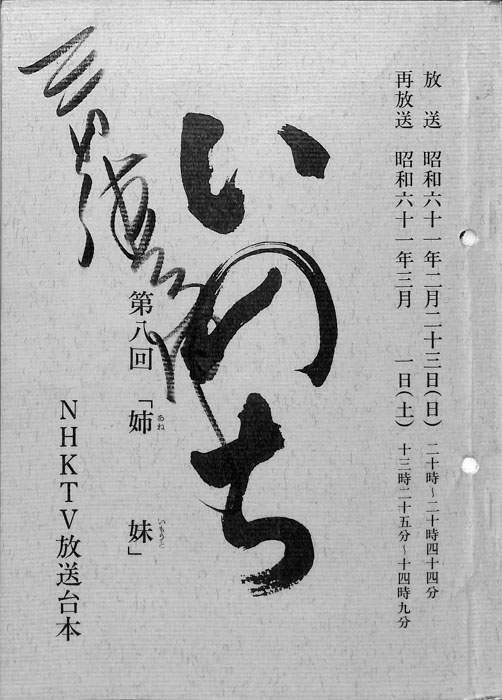 放 送 昭和六十一年二月二十三日(日) 二十時～二十時四十四分
再放送 昭和六十一年三月 一日(土) 十三時二十五分～十四時九分
いのち
第八回「姉 妹」
あね いもうと
NHKTV放送台本